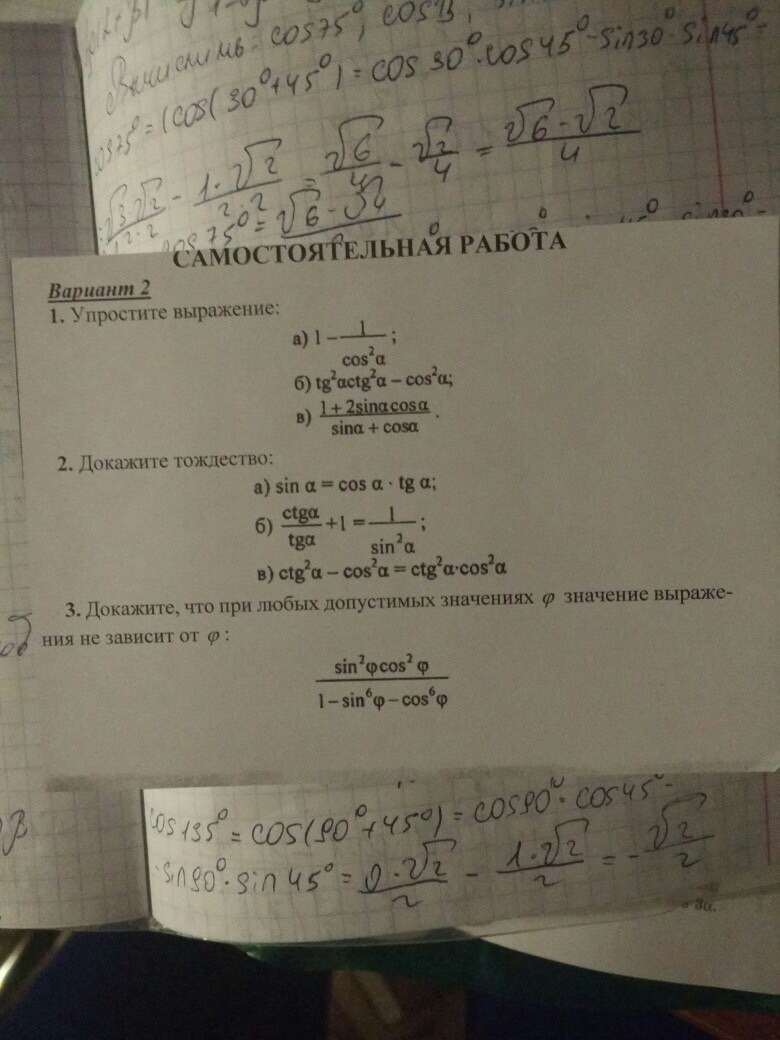 Вычислить: cos75°, cos
cos75° = (cos(30°+45°) = cos 30°·cos 45° - sin30°·sin45° =
√3·√2/2·2 - 1·√2/2·2 = √6/4 - √2/4 = √6-√2/4
cos 75° = √6-
САМОСТОЯТЕЛЬНАЯ РАБОТА
Вариант 2
1. Упростите выражение:
а) 1 – 1/cos²α;
б) tg²αctg²α – cos²α;
в) 1 + 2sinαcosα/sinα + cosα.
2. Докажите тождество:
а) sin α = cos α · tg α;
б) ctgα/tgα +1 = 1/sin²α;
в) ctg²α – cos²α = ctg²α·cos²α
3. Докажите, что при любых допустимых значениях φ значение выраже-
ния не зависит от φ :
sin²φcos²φ
1 – sin⁶φ – cos⁶φ
cos135° = cos(90°+45°) = cos90°·cos45° -
·sin90°·sin45° = 0·√2/2 - 1·√2/2 = -√2/2